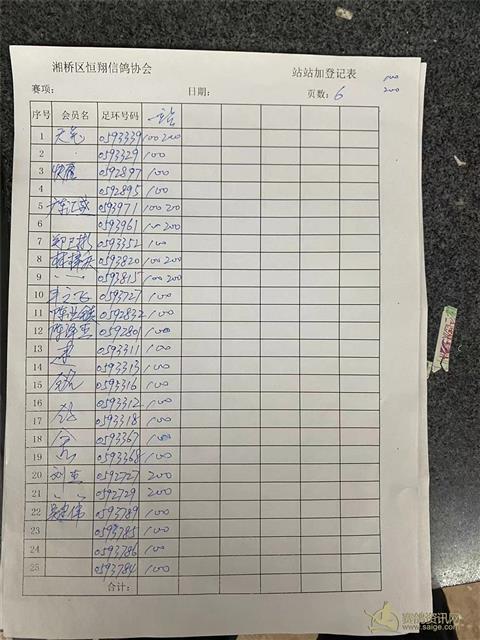 湘桥区恒翔信鸽协会 站站加登记表
100
200
赛项： 日期： 页数：6
序号 会员名 足环号码 一站
1 0593339 100 200
2 0593329 100
3 0592897 100
4 0592895 100
5 广东汇盛 0593971 100 200
6 0593961 100 200
7 郑卫彬 0593352 100
8 0593820 100 200
9 0593815 100 200
10 0593727 100
11 0592832 100
12 0592801 100
13 0593311 100
14 0593313 100
15 0593316 100
16 0593312 100
17 0593318 100
18 0593367 100
19 0593368 100
20 刘杰 0592727 200
21 0592729 200
22 0593789 100
23 0593785 100
24 0593786 100
25 0593784 100
合计：
赛鸽资讯网
www.saige.com